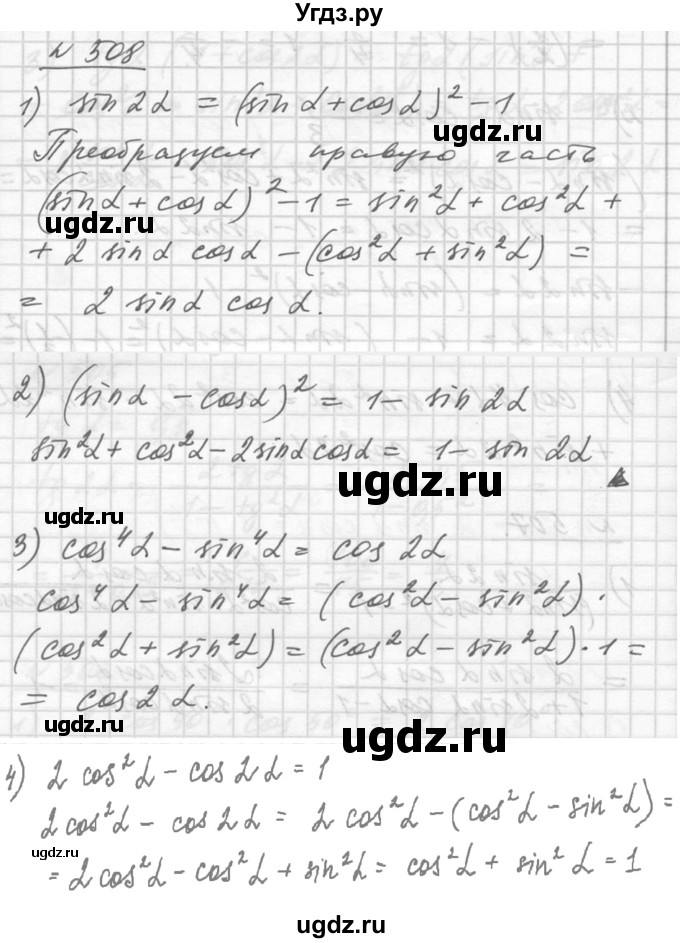 Угдз.ру
№ 508
1) sin 2α = (sin α + cos α)² − 1
ugdz.ru
Преобразуем правую часть
(sin α + cos α)² − 1 = sin²α + cos²α +
ugdz.ru
+ 2 sin α cos α − (cos²α + sin²α) =
= 2 sin α cos α.
2) (sin α − cos α)² = 1 − sin 2α
sin²α + cos²α − 2 sin α cos α = 1 − sin 2α
ugdz.ru
ugdz.ru
3) cos⁴α − sin⁴α = cos 2α
cos⁴α − sin⁴α = (cos²α − sin²α) ·
(cos²α + sin²α) = (cos²α − sin²α) · 1 =
= cos 2α.
ugdz.ru
ugdz.ru
4) 2 cos²α − cos 2α = 1
2 cos²α − cos 2α = 2 cos²α − (cos²α − sin²α) =
ugdz.ru
= 2 cos²α − cos²α + sin²α = cos²α + sin²α = 1
ugdz.ru